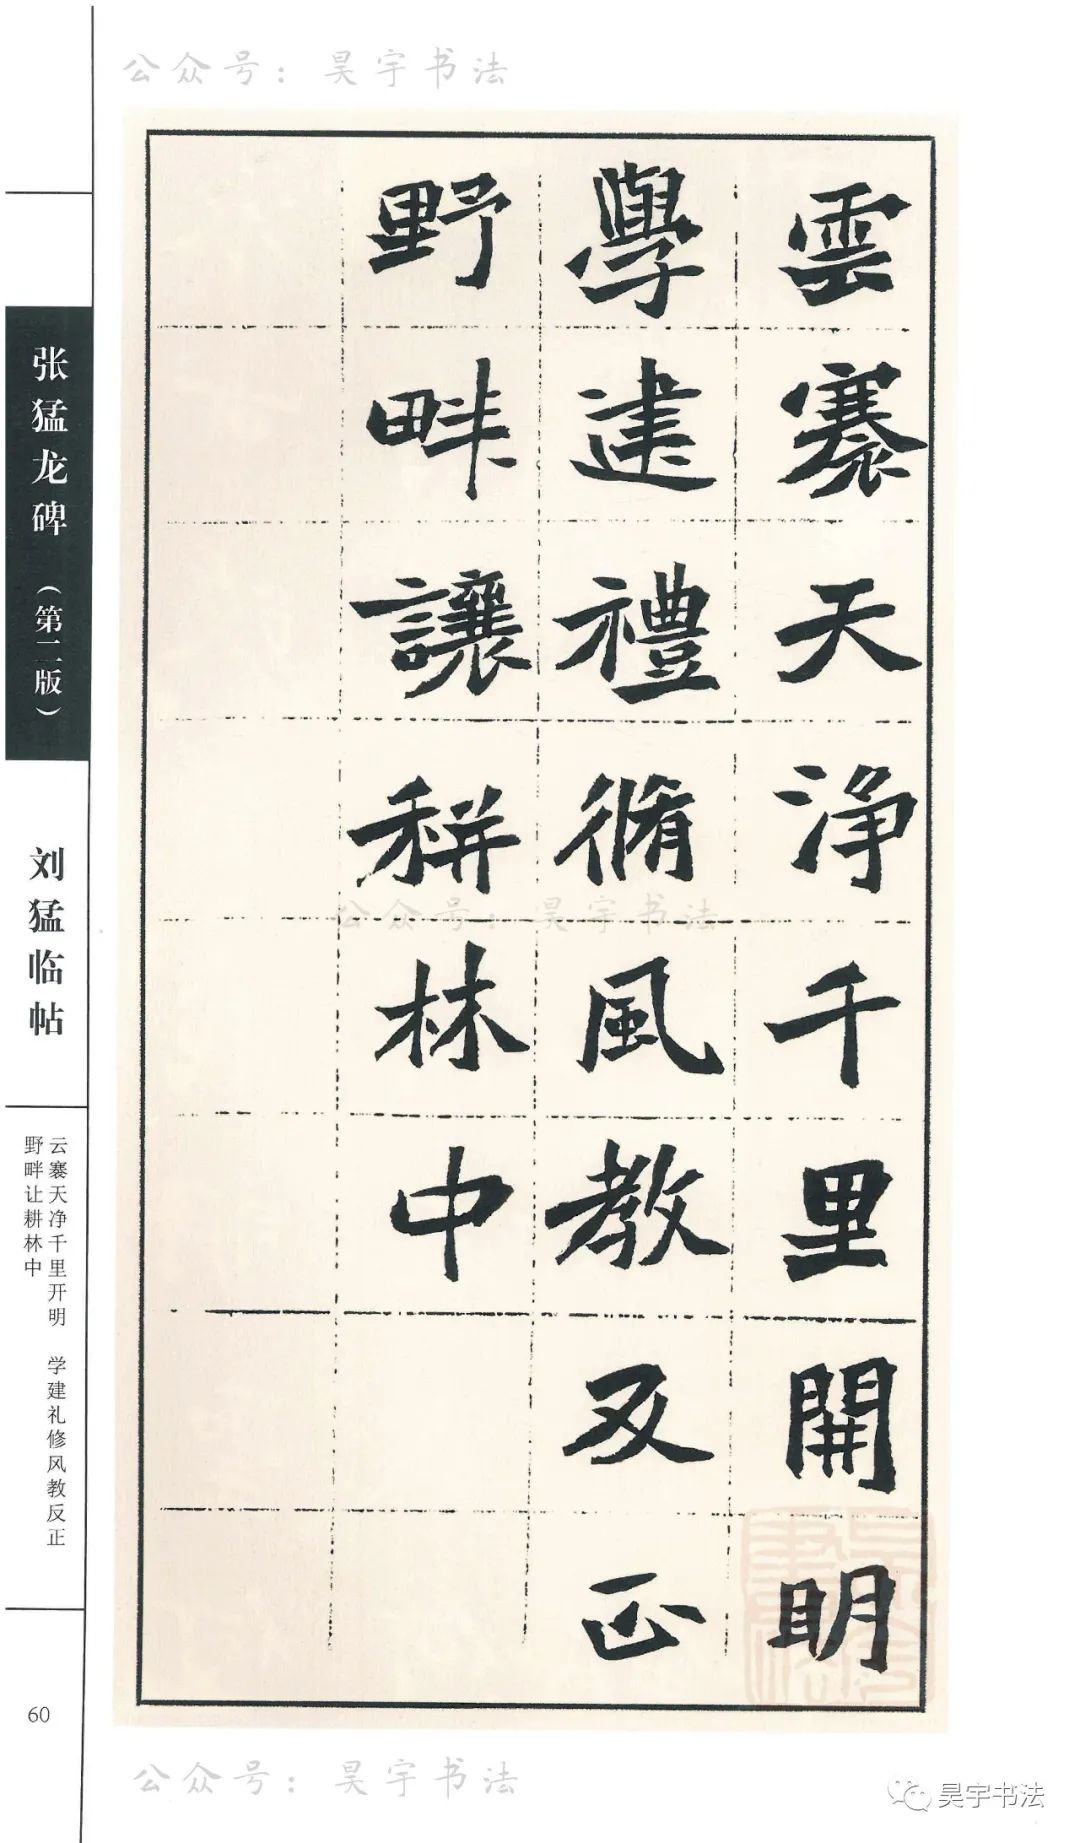 公众号：昊宇书法
雲寨天淨千里開明
學建禮脩風教反正
野畔讓耕林中
张猛龙碑（第二版）
刘猛临帖
云寨天净千里开明 学建礼修风教反正
野畔让耕林中
60
公众号：昊宇书法
公众号：昊宇书法
昊宇书法